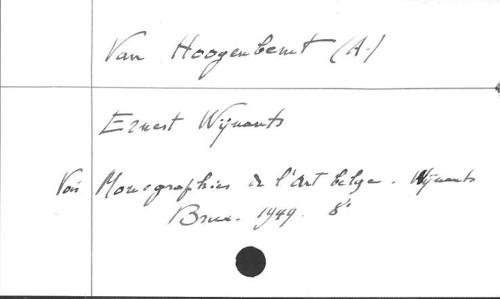 Van Hoogenbemt (A.)
Ernest Wijnants
Voir Monographies de l'Art belge. Wijnants
Brux. 1949. 8°